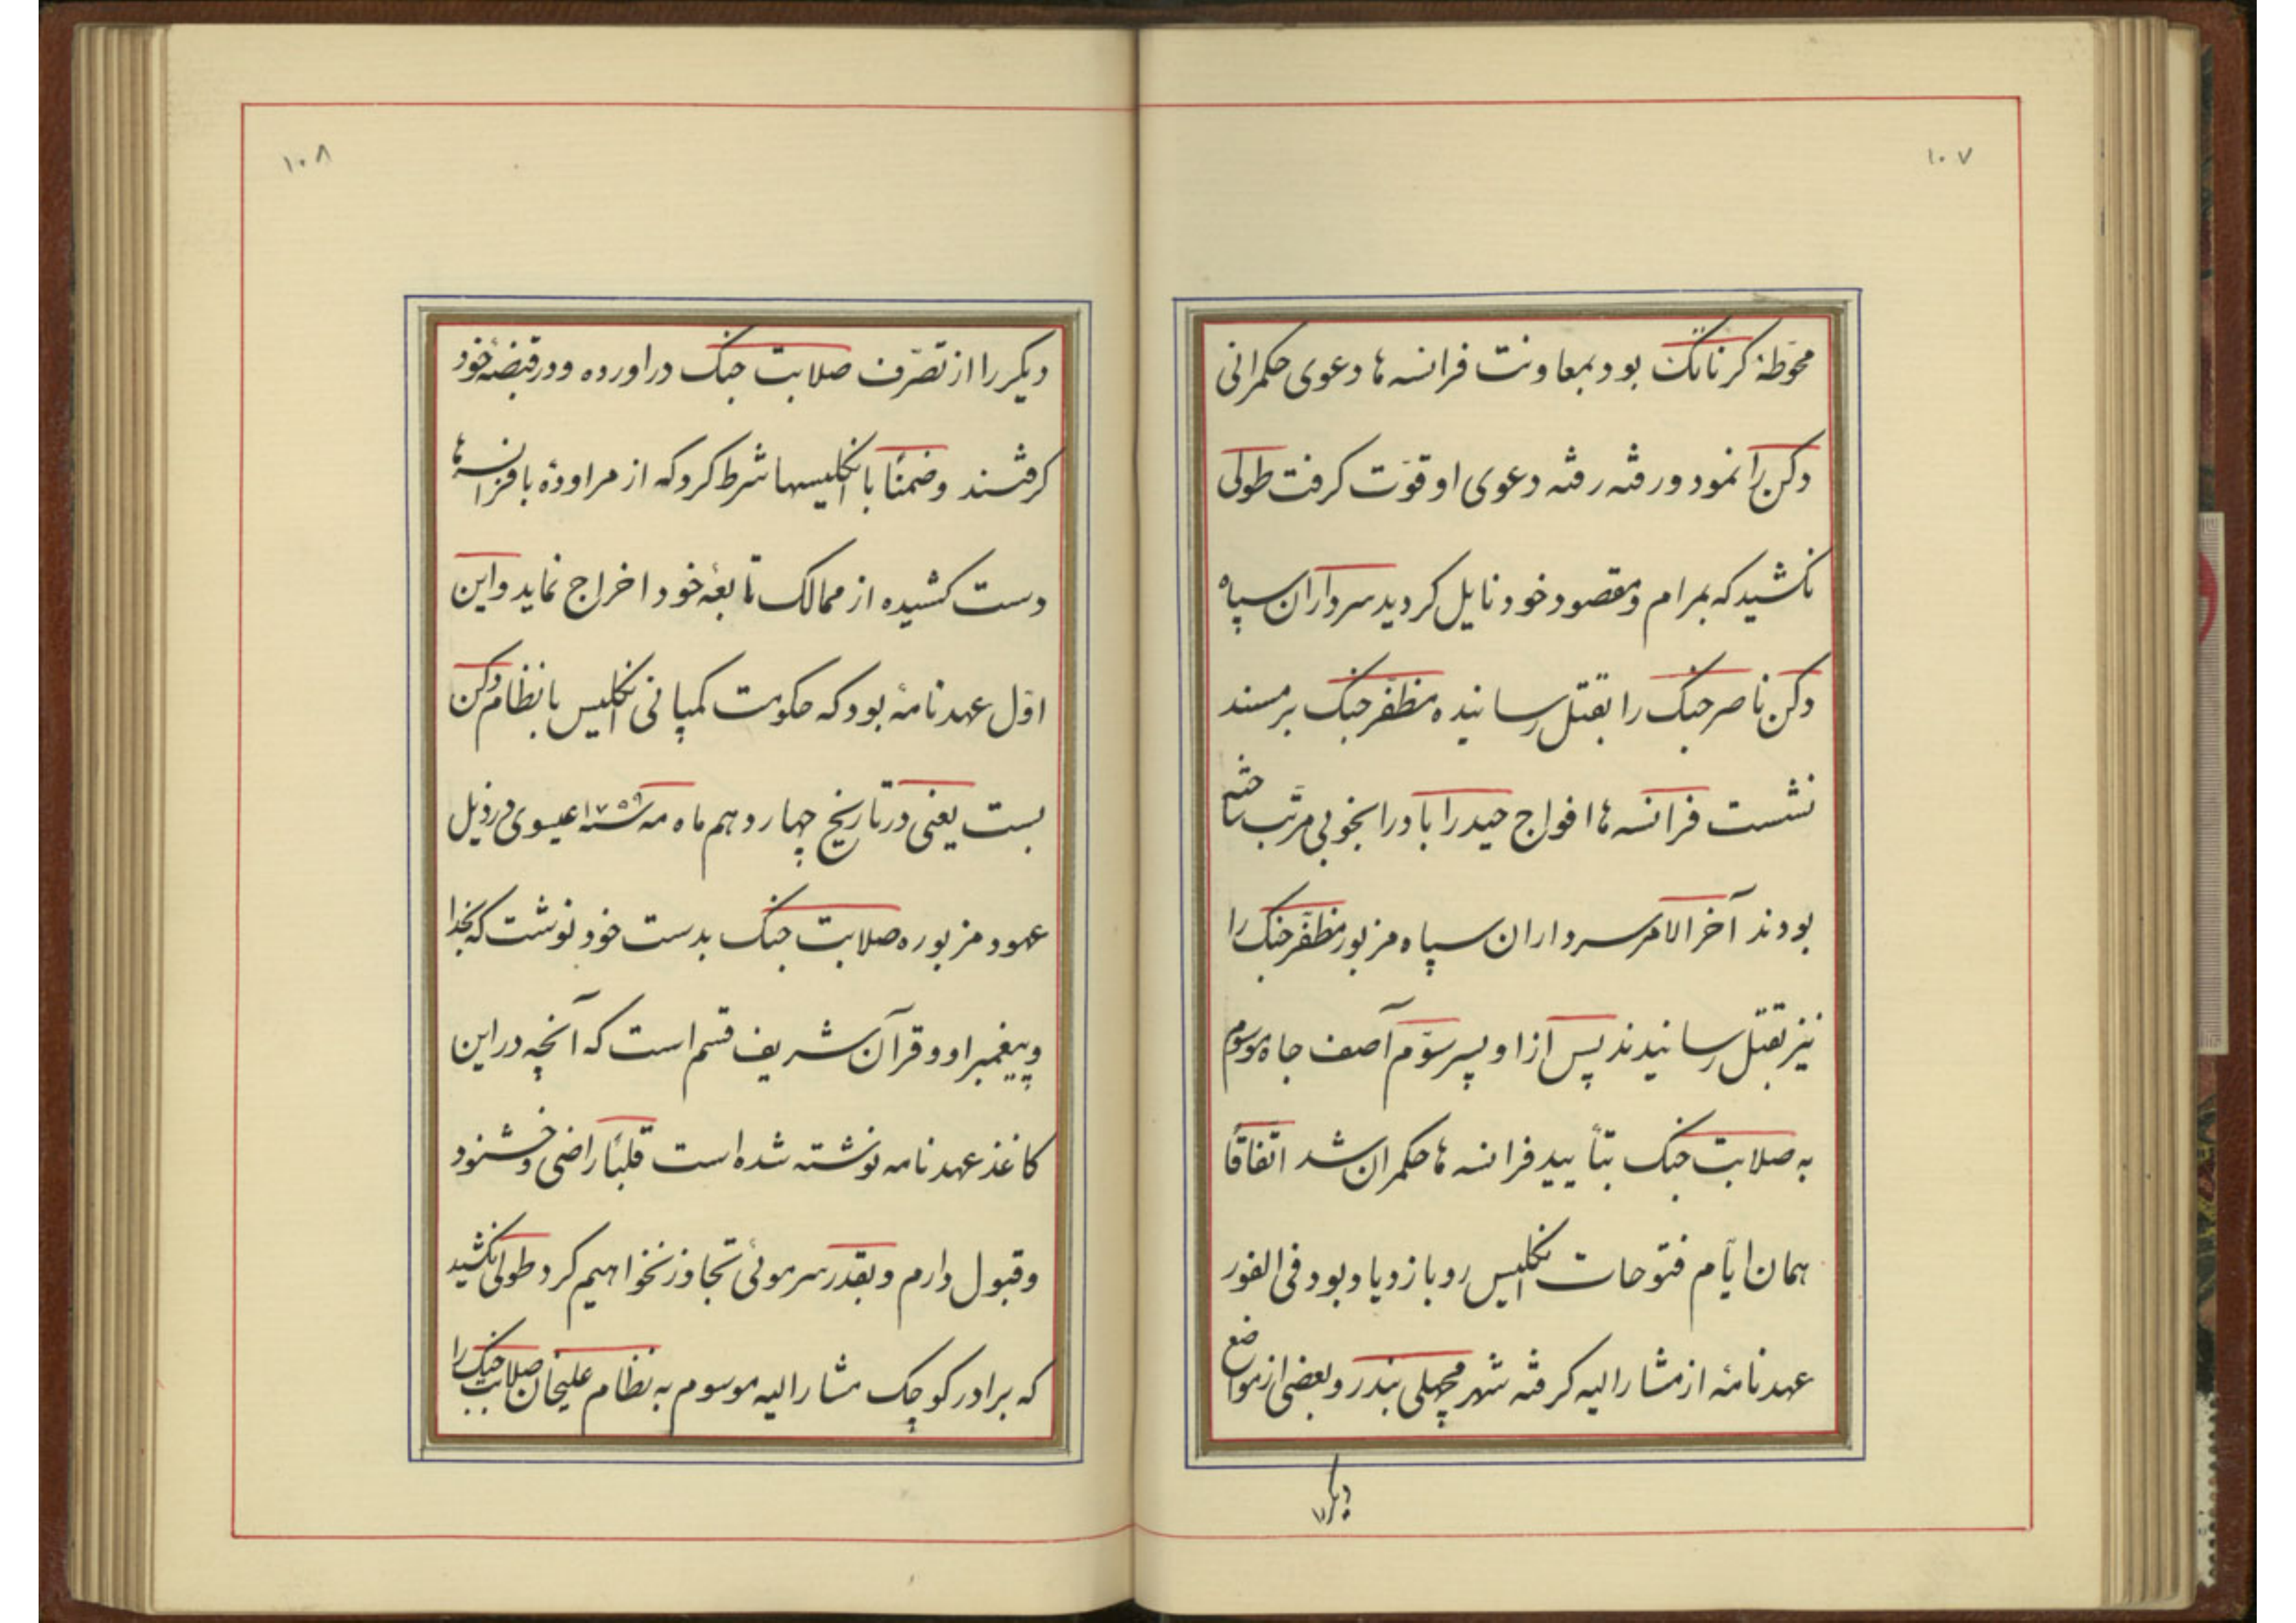 ۱۰۷
محوّطهٔ کرناتک بود بمعاونت فرانسه ها دعوی حکمرانی
دکن را نمود و رفته رفته دعوی او قوّت کرفت طولی
نکشید که بمرام و مقصود خود نایل کردید سرداران سپاه
دکن ناصر جنک را بقتل رسانیده مظفّر جنک بر مسند
نشست فرانسه ها افواج حیدراباد را بخوبی مرتّب ساخته
بودند آخر الامر سرداران سپاه مزبور مظفّر جنک را
نیز بقتل رسانیدند پس از او پسر سوّم آصف جاه موسوم
به صلابت جنک بتأیید فرانسه ها حکمران شد اتّفاقاً
همان ایّام فتوحات انکلیس رو بازدیاد بود فی الفور
عهدنامهٔ از مشارالیه کرفته شهر مچهلی بندر و بعضی از مواضع
دیکر را
۱۰۸
دیکر را از تصرّف صلابت جنک دراورده و در قبضهٔ خود
کرفتند و ضمناً با انکلیسها شرط کرد که از مراودهٔ با فرانسه ها
دست کشیده از ممالک تابعهٔ خود اخراج نماید و این
اوّل عهدنامهٔ بود که حکومت کمپانی انکلیس با نظام دکن
بست یعنی در تاریخ چهاردهم ماه مه سنه ۱۷۵۹ عیسوی در ذیل
عهود مزبوره صلابت جنک بدست خود نوشت که بخدا
و پیغمبر او و قرآن شریف قسم است که آنچه در این
کاغذ عهدنامه نوشته شده است قلباً راضی و خشنود
و قبول دارم و بقدر سر موئی تجاوز نخواهیم کرد طولی نکشید
که برادر کوچک مشارالیه موسوم به نظام علیخان صلابت جنک را